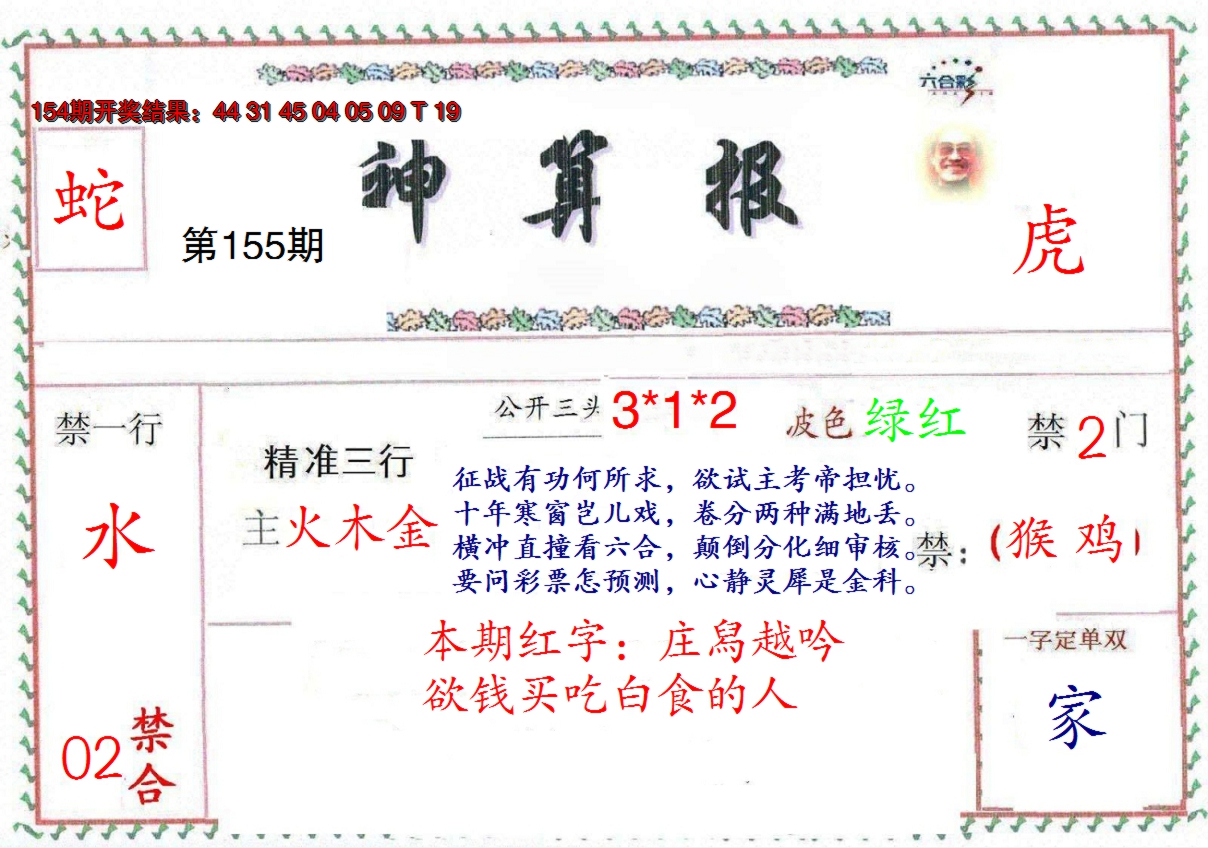 六合彩
154期开奖结果：44 31 45 04 05 09 T 19
神算报
蛇
第155期
虎
禁一行
水
02
禁合
精准三行
主火木金
公开三头 3*1*2
波色 绿红
征战有功何所求，欲试主考帝担忧。
十年寒窗岂儿戏，卷分两种满地丢。
横冲直撞看六合，颠倒分化细审核。
要问彩票怎预测，心静灵犀是金科。
禁2门
禁：（猴 鸡）
本期红字：庄舄越吟
欲钱买吃白食的人
一字定单双
家